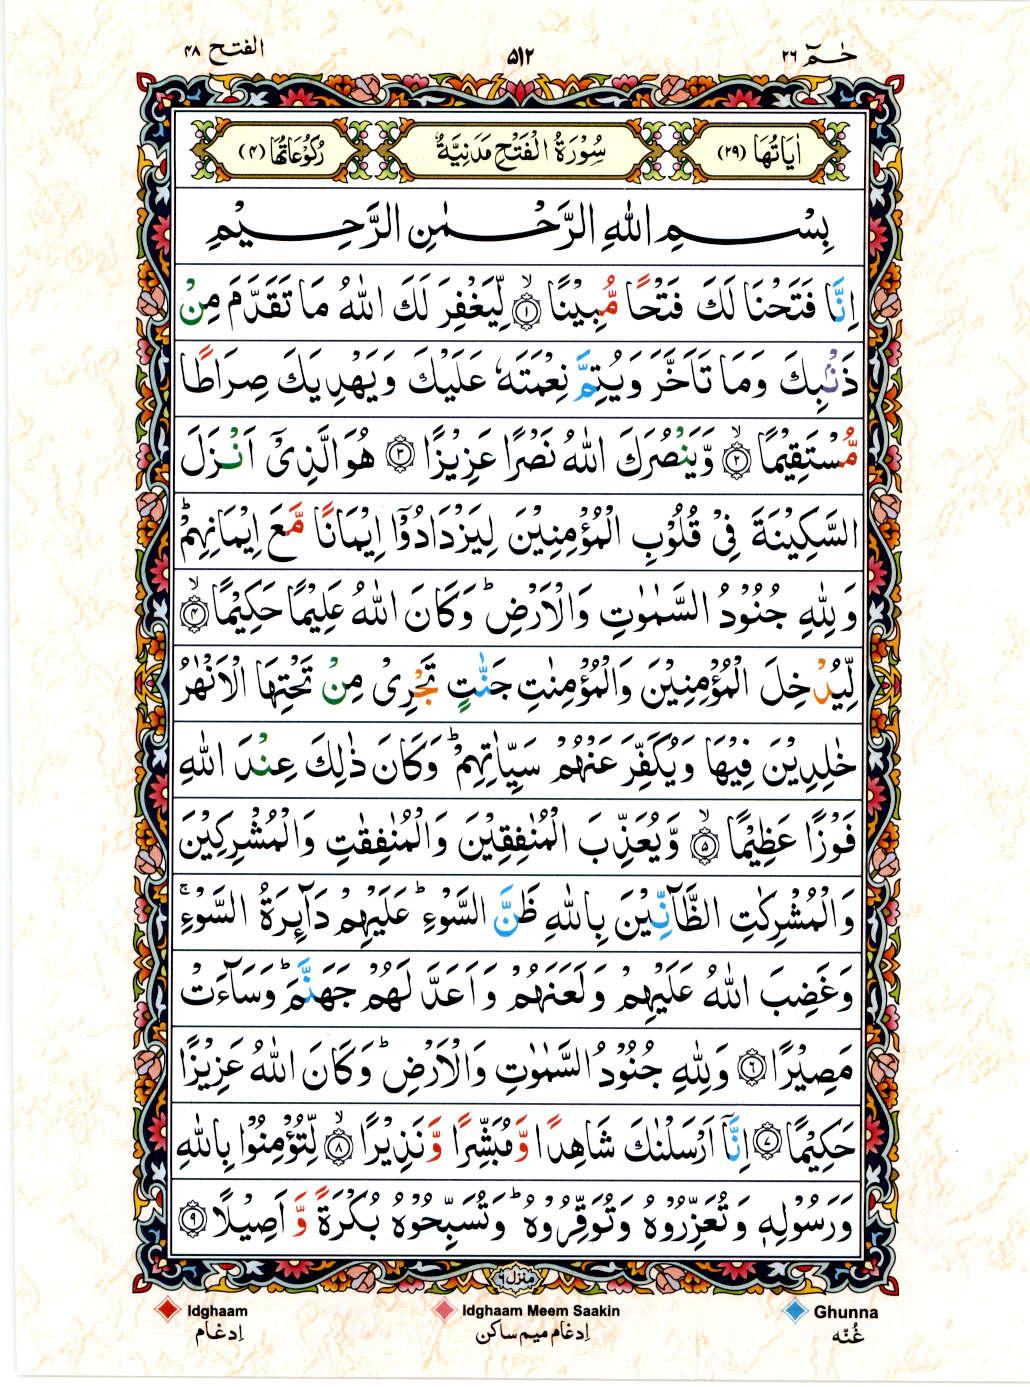 الفتح ۴۸
۵۱۲
حٰمٓ ۲۶
اٰیَاتُهَا (۲۹)
سُوْرَةُ الْفَتْحِ مَدَنِیَّةٌ
رُكُوْعَاتُهَا (۴)
بِسْمِ اللهِ الرَّحْمٰنِ الرَّحِیْمِ
اِنَّا فَتَحْنَا لَكَ فَتْحًا مُّبِیْنًا ۙ﴿۱﴾ لِّیَغْفِرَ لَكَ اللهُ مَا تَقَدَّمَ مِنْ
ذَنْۢبِكَ وَمَا تَاَخَّرَ وَیُتِمَّ نِعْمَتَهٗ عَلَیْكَ وَیَهْدِیَكَ صِرَاطًا
مُّسْتَقِیْمًا ۙ﴿۲﴾ وَّیَنْصُرَكَ اللهُ نَصْرًا عَزِیْزًا ﴿۳﴾ هُوَ الَّذِیْۤ اَنْزَلَ
السَّكِیْنَةَ فِیْ قُلُوْبِ الْمُؤْمِنِیْنَ لِیَزْدَادُوْۤا اِیْمَانًا مَّعَ اِیْمَانِهِمْ ؕ
وَلِلّٰهِ جُنُوْدُ السَّمٰوٰتِ وَالْاَرْضِ ؕ وَكَانَ اللهُ عَلِیْمًا حَكِیْمًا ۙ﴿۴﴾
لِّیُدْخِلَ الْمُؤْمِنِیْنَ وَالْمُؤْمِنٰتِ جَنّٰتٍ تَجْرِیْ مِنْ تَحْتِهَا الْاَنْهٰرُ
خٰلِدِیْنَ فِیْهَا وَیُكَفِّرَ عَنْهُمْ سَیِّاٰتِهِمْ ؕ وَكَانَ ذٰلِكَ عِنْدَ اللهِ
فَوْزًا عَظِیْمًا ۙ﴿۵﴾ وَّیُعَذِّبَ الْمُنٰفِقِیْنَ وَالْمُنٰفِقٰتِ وَالْمُشْرِكِیْنَ
وَالْمُشْرِكٰتِ الظَّآنِّیْنَ بِاللهِ ظَنَّ السَّوْءِ ؕ عَلَیْهِمْ دَآئِرَةُ السَّوْءِ ۚ
وَغَضِبَ اللهُ عَلَیْهِمْ وَلَعَنَهُمْ وَاَعَدَّ لَهُمْ جَهَنَّمَ ؕ وَسَآءَتْ
مَصِیْرًا ﴿۶﴾ وَلِلّٰهِ جُنُوْدُ السَّمٰوٰتِ وَالْاَرْضِ ؕ وَكَانَ اللهُ عَزِیْزًا
حَكِیْمًا ﴿۷﴾ اِنَّاۤ اَرْسَلْنٰكَ شَاهِدًا وَّمُبَشِّرًا وَّنَذِیْرًا ۙ﴿۸﴾ لِّتُؤْمِنُوْا بِاللهِ
وَرَسُوْلِهٖ وَتُعَزِّرُوْهُ وَتُوَقِّرُوْهُ ؕ وَتُسَبِّحُوْهُ بُكْرَةً وَّاَصِیْلًا ﴿۹﴾
منزل ۶
Idghaam
اِدغام
Idghaam Meem Saakin
اِدغام میم ساکن
Ghunna
غُنّه